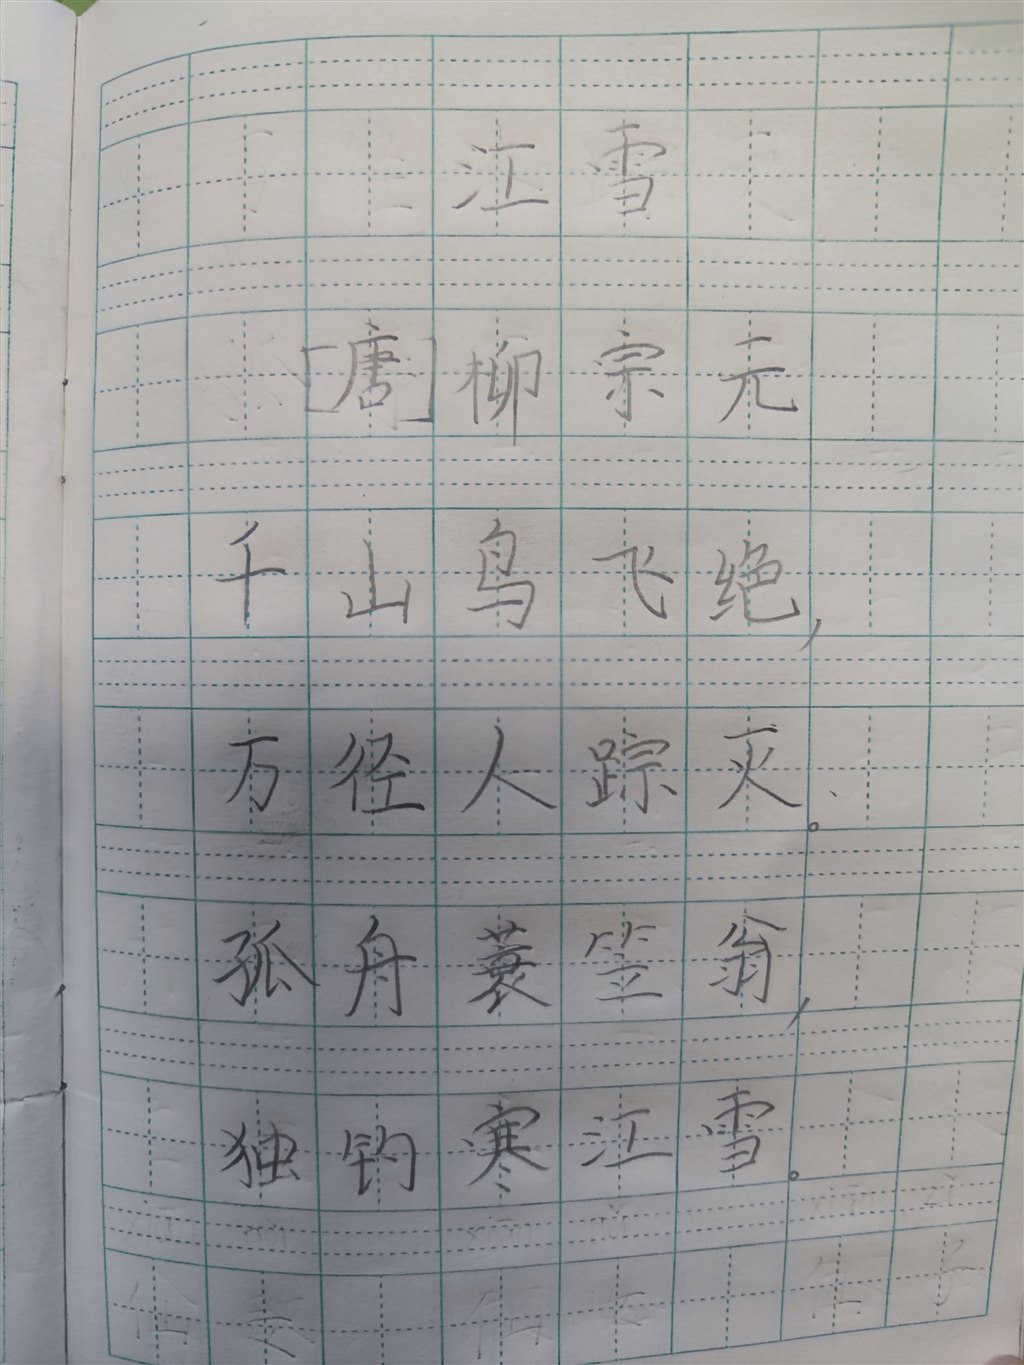 江雪
[唐]柳宗元
千山鸟飞绝,
万径人踪灭。
孤舟蓑笠翁,
独钓寒江雪。